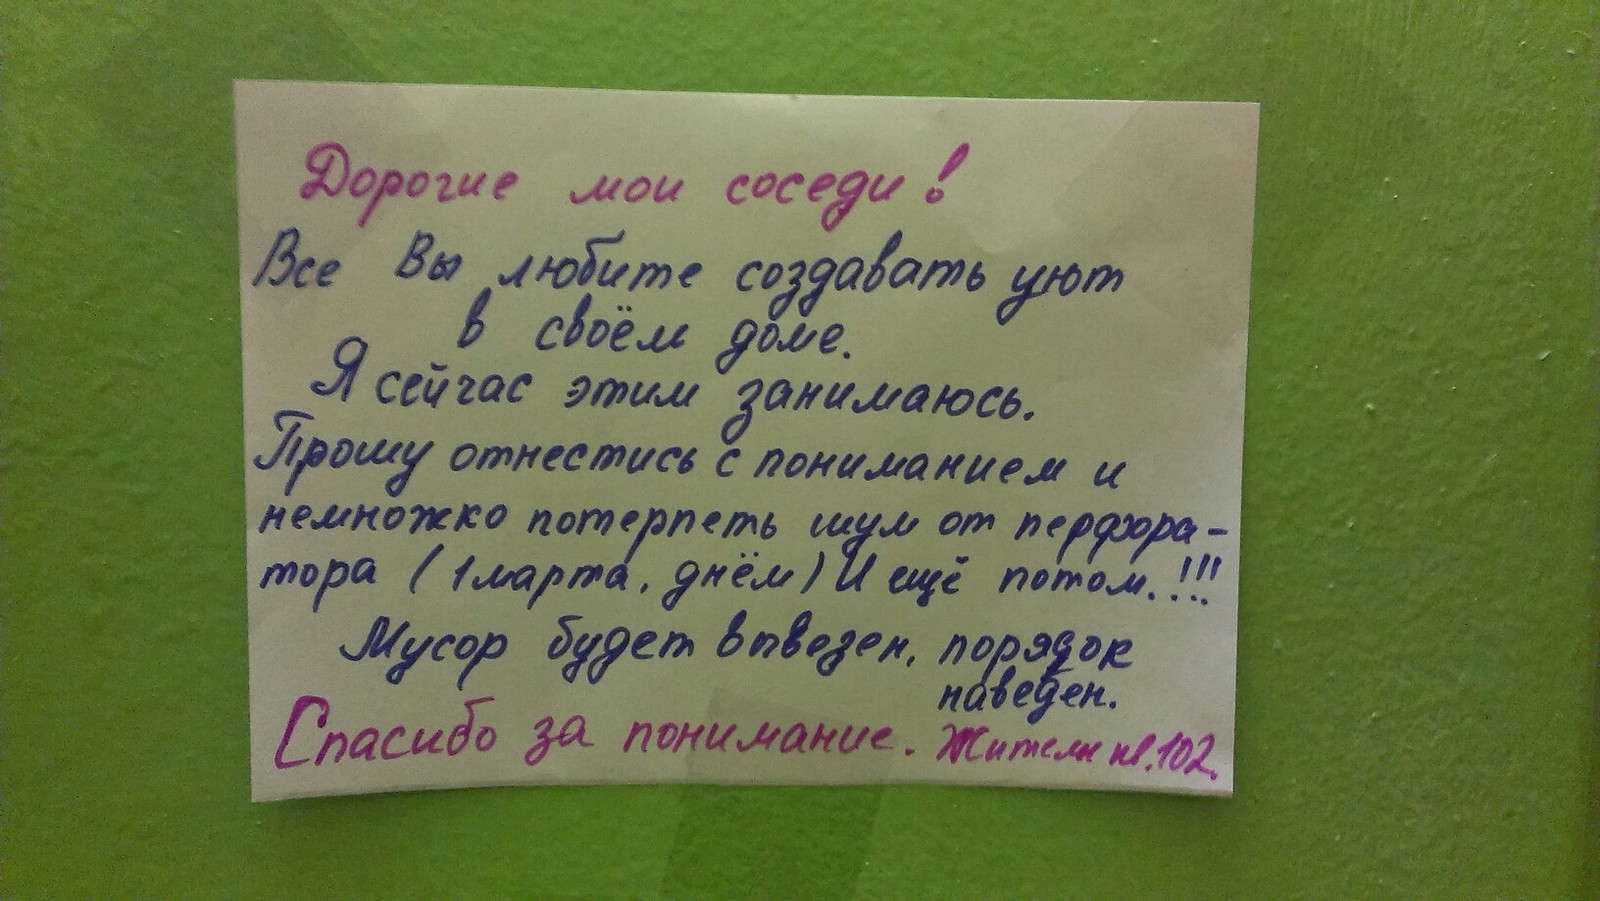 Дорогие мои соседи!
Все Вы любите создавать уют
в своём доме.
Я сейчас этим занимаюсь.
Прошу отнестись с пониманием и
немножко потерпеть шум от перфора-
тора (1 марта, днём) И ещё потом.!!!
Мусор будет вывезен, порядок
наведен.
Спасибо за понимание. Жители кв.102.